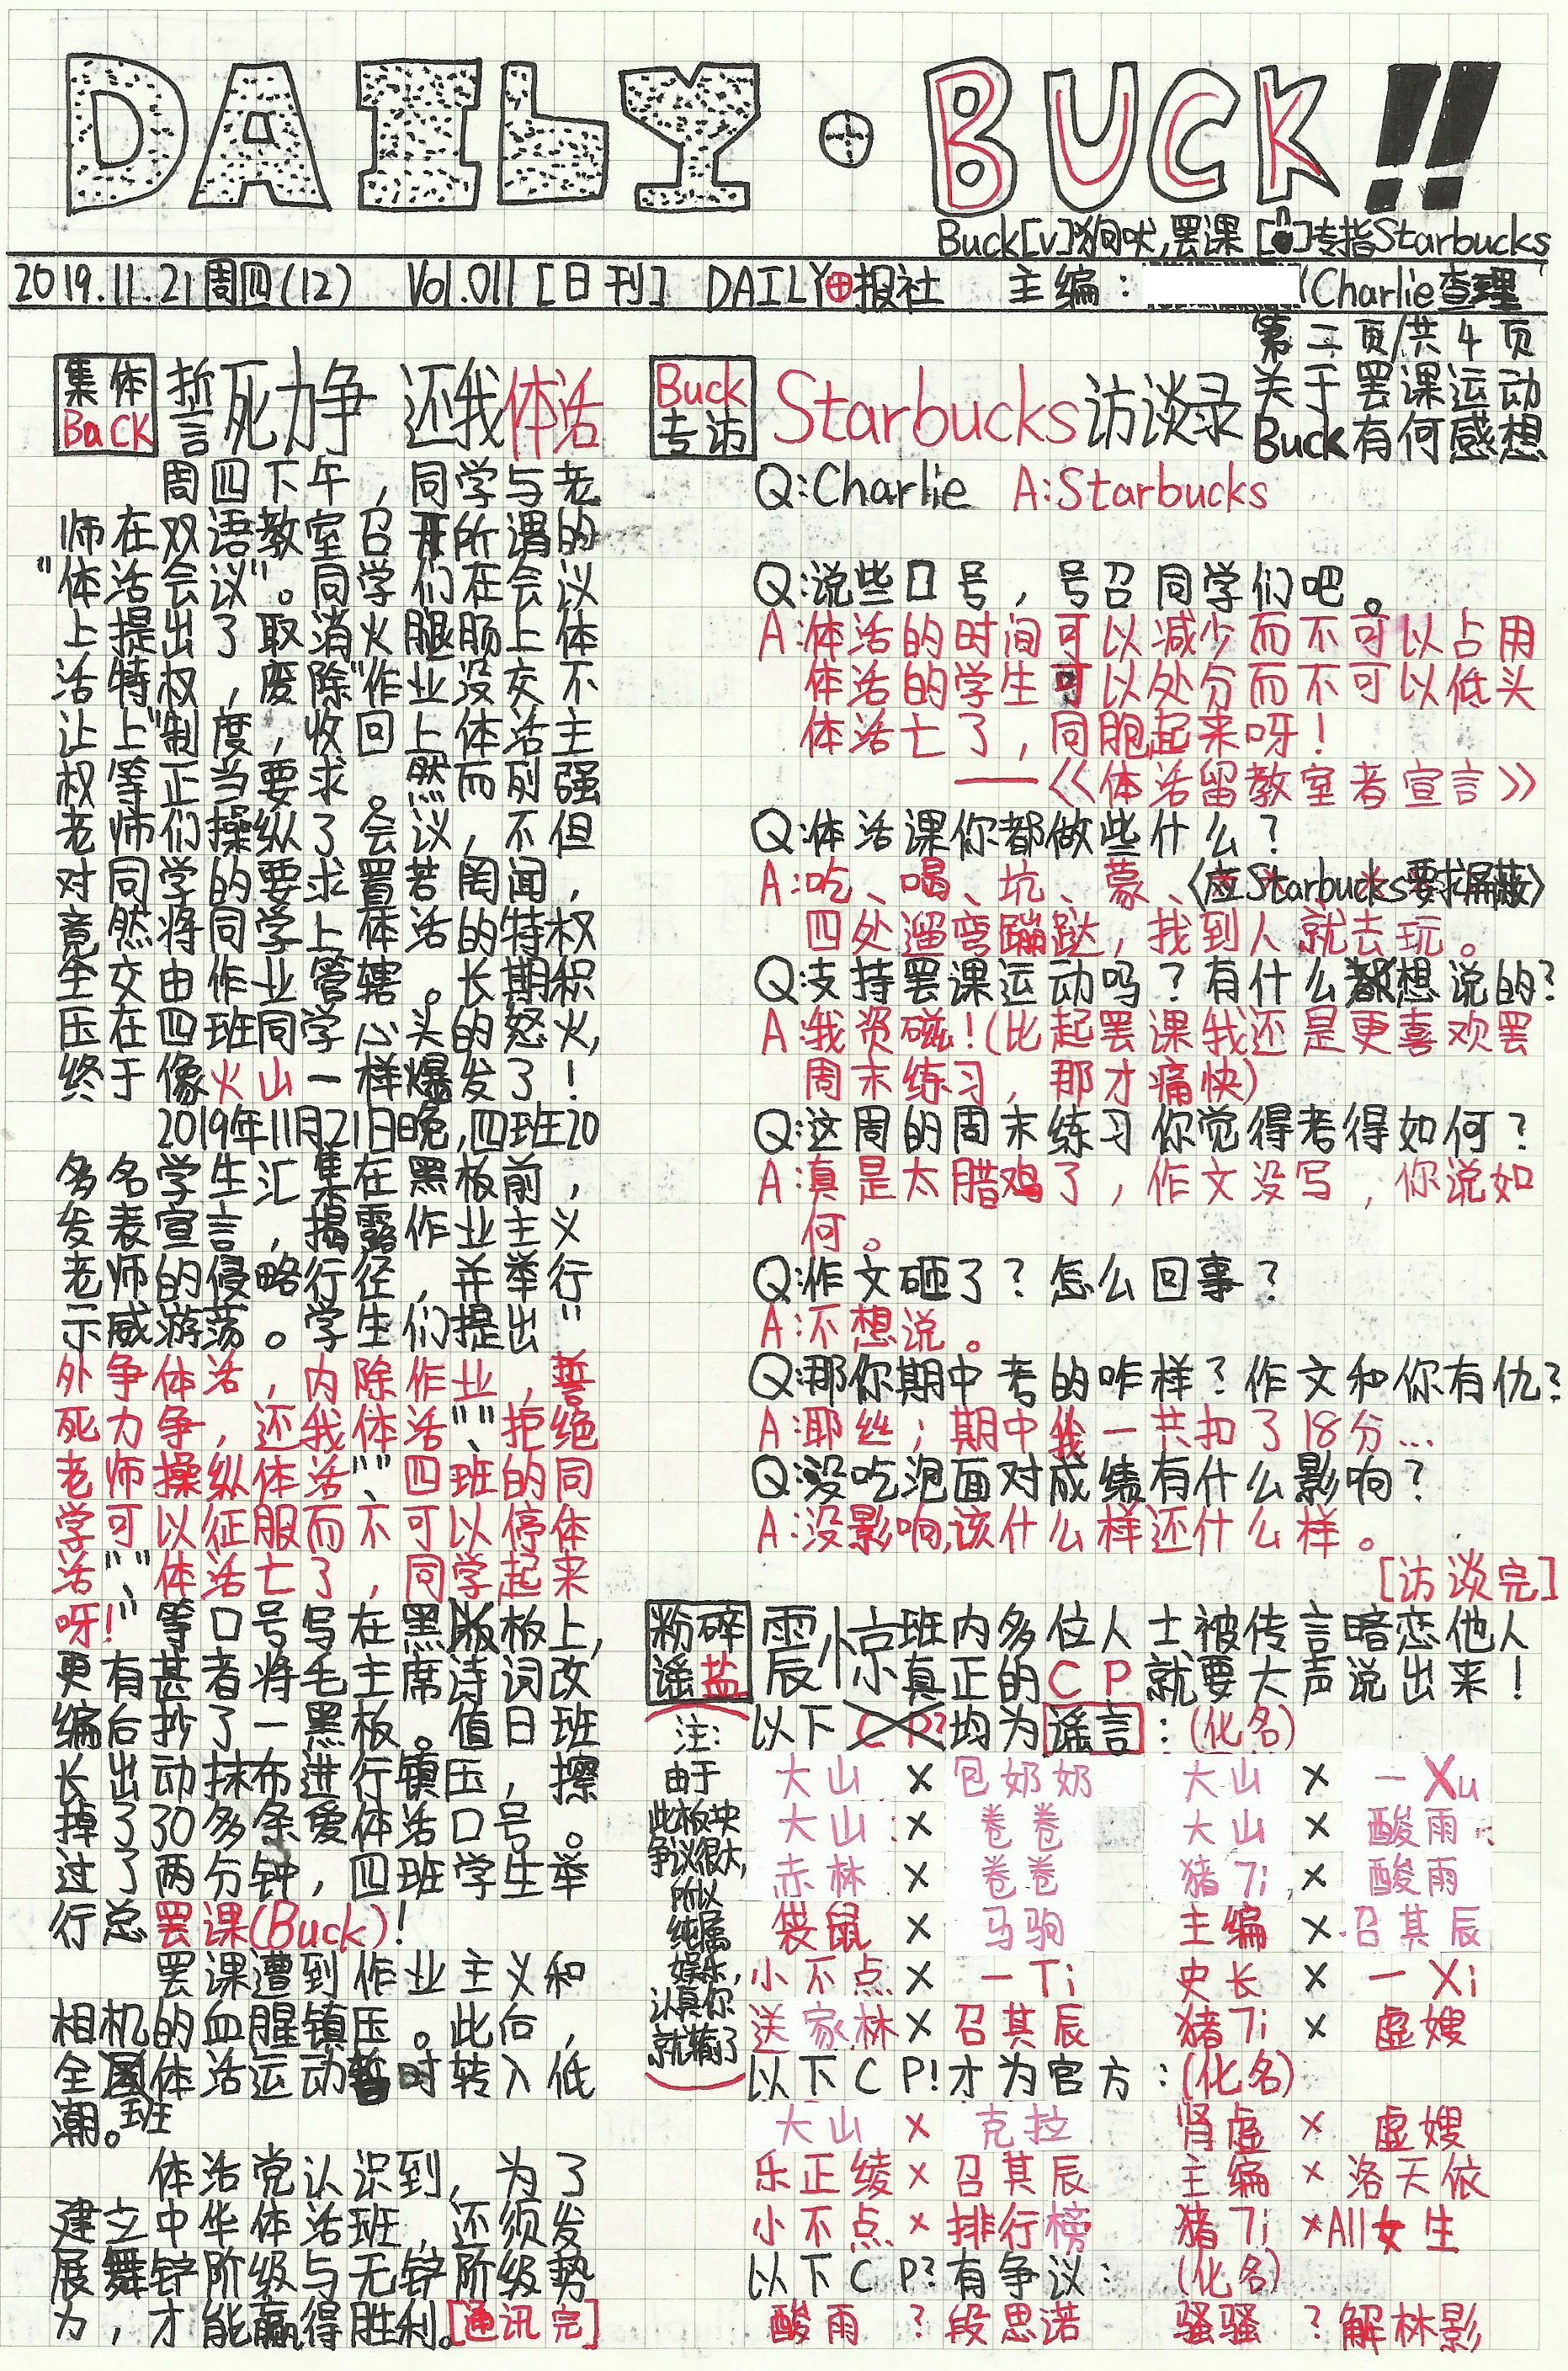 DAILY·BUCK!!
Buck[v]狗吠,罢课 [ ]专指Starbucks
2019.11.21周四(12) Vol.011[日刊] DAILY报社 主编: (Charlie查理
第二页/共4页
集体
Back
誓死力争 还我体活
周四下午,同学与老
师在双语教室召开所谓的
"体活会议"。同学们在会议
上提出了取消火腿肠上体
活特权,废除"作业没交不
让上"制度,收回上体活主
权等正当要求。然而列强
老师们操纵了会议,不但
对同学的要求置若罔闻,
竟然将同学上体活的特权
全交由作业管辖。长期积
压在四班同学心头的怒火,
终于像火山一样爆发了!
2019年11月21日晚,四班20
多名学生汇集在黑板前,
发表宣言,揭露作业主义
老师的侵略行径,并举行
示威游荡。学生们提出"
外争体活,内除作业,誓
死力争,还我体活"、"拒绝
老师操纵体活"、"四班的同
学可以征服而不可以停体
活"、"体活亡了,同学起来
呀!"等口号写在黑板上,
更有甚者将毛主席诗词改
编后抄了一黑板。值日班
长出动抹布进行镇压,擦
掉了30多条爱体活口号。
过了两分钟,四班学生举
行总罢课(Buck)!
罢课遭到作业主义和
相机的血腥镇压。此后,
全班体活运动暂时转入低
潮。
体活党认识到,为了
建立中华体活班,还须发
展舞铲阶级与无铲阶级势
力,才能赢得胜利。[通讯完]
Buck
专访
Starbucks访谈录
关于罢课运动
Buck有何感想
Q:Charlie A:Starbucks
Q:说些口号,号召同学们吧。
A:体活的时间可以减少而不可以占用
体活的学生可以处分而不可以低头
体活亡了,同胞起来呀!
——《体活留教室者宣言》
Q:体活课你都做些什么?
A:吃、喝、坑、蒙、〈应Starbucks要求屏蔽〉
四处遛弯蹦跶,找到人就去玩。
Q:支持罢课运动吗?有什么想说的?
A:我资磁!(比起罢课我还是更喜欢罢
周末练习,那才痛快)
Q:这周的周末练习你觉得考得如何?
A:真是太腊鸡了,作文没写,你说如
何。
Q:作文砸了?怎么回事?
A:不想说。
Q:那你期中考的咋样?作文和你有仇?
A:耶丝;期中我一共扣了18分...
Q:没吃泡面对成绩有什么影响?
A:没影响,该什么样还什么样。
[访谈完]
粉碎
谣盐
震惊
班内多位人士被传言暗恋他人
真正的CP就要大声说出来!
注:
由于
此板块
争议很大,
所以
纯属
娱乐,
认真你
就输了
以下CP?均为谣言:(化名)
大山 × 包奶奶 大山 × 一Xu
大山 × 卷卷 大山 × 酸雨
赤林 × 卷卷 猪7i × 酸雨
袋鼠 × 马驹 主编 × 召其辰
小不点 × 一Ti 史长 × 一Xi
送家林 × 召其辰 猪7i × 虚嫂
以下CP!才为官方:(化名)
大山 × 克拉 肾虚 × 虚嫂
乐正绫 × 召其辰 主编 × 洛天依
小不点 × 排行榜 猪7i ×All女生
以下CP?有争议: (化名)
酸雨 ? 段思诺 骚骚 ? 解林影